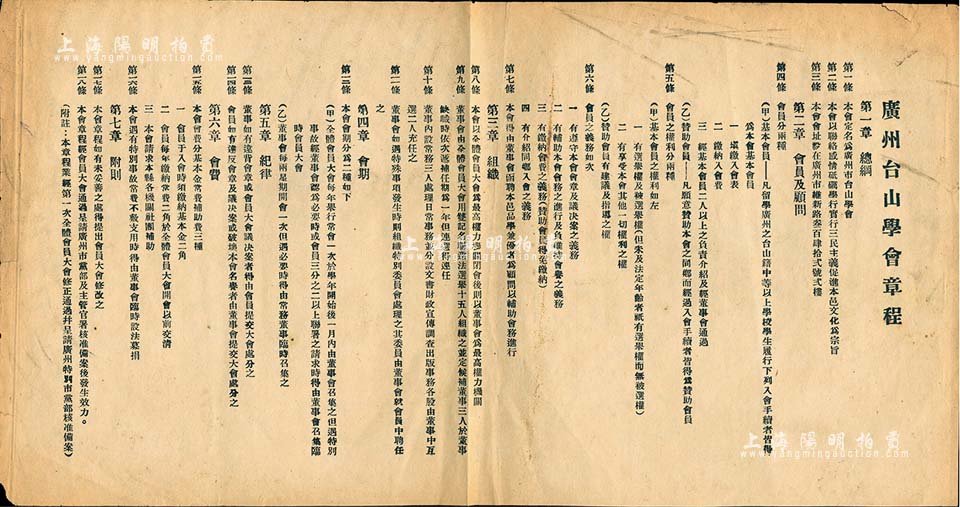 廣州台山學會章程
第一章 總綱
第一條 本會定名爲廣州市台山學會
第二條 本會以聯絡感情砥礪學行實行三民主義促進本邑文化爲宗旨
第三條 本會會址暫在廣州市維新路叁百肆拾弍號弍樓
第二章 會員及顧問
第四條 會員分兩種
(甲)基本會員——凡留學廣州之台山籍中等以上學校學生履行下列入會手續者皆得
爲本會基本會員
一 塡繳入會表
二 繳納入會費
三 經基本會員二人以上之負責介紹及經董事會通過
(乙)贊助會員——凡願意贊助本會之同鄕而經過入會手續者皆得爲贊助會員
第五條 會員之權利分兩種
(甲)基本會員之權利如左
一 有選舉權及被選舉權(但未及法定年齡者祇有選舉權而無被選權)
二 有享受本會其他一切權利之權
(乙)贊助會員有建議及指導之權
第六條 會員之義務如次
一 有遵守本會會章及議決案之義務
二 有輔助本會會務之進行及負維持會譽之義務
三 有繳納會費之義務(贊助會員得免繳納)
四 有介紹同鄕入會之義務
第七條 本會得由董事會函聘本邑品學兼優者爲顧問以輔助會務進行
第三章 組織
第八條 本會以全體會員大會爲最高權力機關閉會後則以董事會爲最高權力機關
第九條 董事會由全體會員大會用雙記名聯選法選舉十五人組織之並定候補董事三人於董事
缺職時依次遞補任期爲一年但連選得連任
第十條 董事內設常務三人處理日常事務並分設文書財政宣傳調查出版事務各股由董事中互
選二人充任之
第二條 董事會如遇特殊事項發生時則組織特別委員會處理之其委員由董事會就會員中聘任
之
第四章 會期
第三條 本會會期分爲二種如下
(甲)全體會員大會每年舉行常會一次於學年開始後一月內由董事會召集之但遇特別
事故經董事會認爲必要時或會員三分之二以上聯署之請求時得由董事會召集臨
時會員大會
(乙)董事會每兩星期開會一次但遇必要時得由常務董事臨時召集之
第五章 紀律
第三條 董事如有違背會章或會員大會議決案者得由會員提交大會處分之
第四條 會員如有違反會章及議決案或破壞本會名譽者由董事會提交大會處分之
第六章 會費
第五條 本會會費分基本金常費補助費三種
一 會員于入會時須繳納基本金二角
二 會員每年繳納常費二角於全體會員大會開會以前交淸
三 本會請求本縣各機關社團補助
第六條 本會遇有特別事故常費不敷支用時得由董事會臨時設法募捐
第七章 附則
第七條 本會章程如有未妥善之處得提出會員大會修改之
第八條 本會章程經會員大會通過呈請廣州市黨部及主管官署核准備案後發生效力。
(附註：本章程業經第一次全體會員大會修正通過幷呈請廣州特別市黨部核准備案)
上海陽明拍賣
www.yangmingauction.com
上海陽明拍賣
www.yangmingauction.com
上海陽明拍賣
www.yangmingauction.com